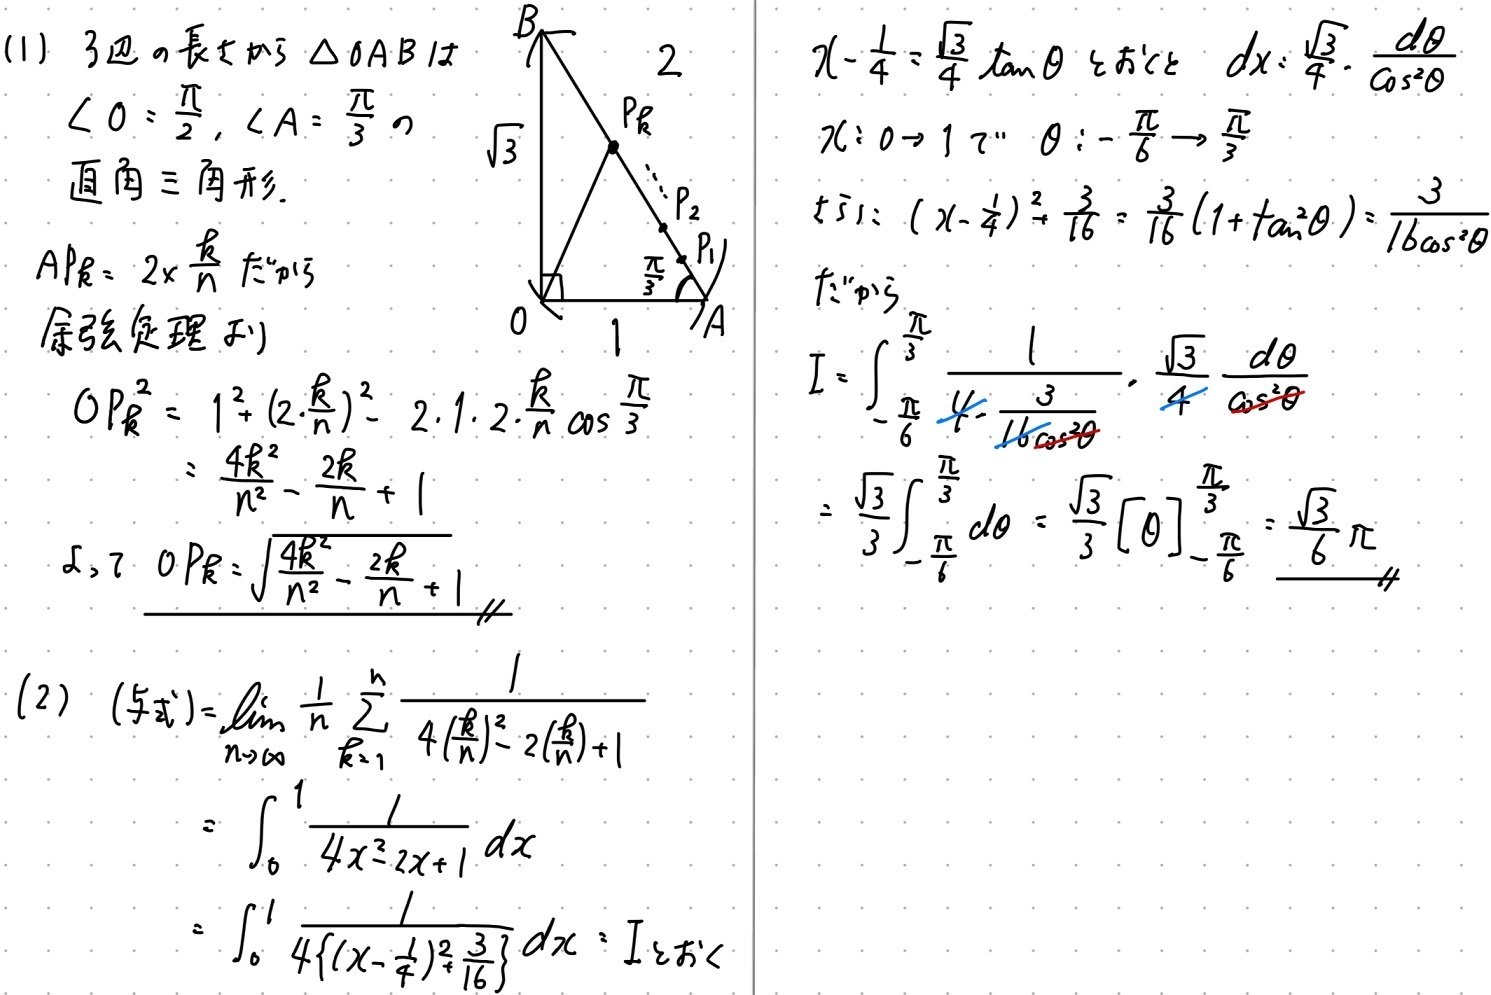 (1) 3辺の長さから △OABは
∠O = π/2, ∠A = π/3 の
直角三角形.
AP_k = 2 × k/n だから
余弦定理より
OP_k² = 1² + (2・k/n)² - 2・1・2・k/n cos π/3
= 4k²/n² - 2k/n + 1
よって OP_k = √(4k²/n² - 2k/n + 1)
B
2
√3
P_k
P_2
P_1
π/3
O
1
A
(2) (与式) = lim_{n→∞} 1/n Σ_{k=1}^{n} 1/(4(k/n)² - 2(k/n) + 1)
= ∫_0^1 1/(4x² - 2x + 1) dx
= ∫_0^1 1/(4{(x - 1/4)² + 3/16}) dx = I とおく
x - 1/4 = √3/4 tanθ とおくと dx = √3/4 ・ dθ/cos²θ
x : 0 → 1 で θ : -π/6 → π/3
さらに (x - 1/4)² + 3/16 = 3/16 (1 + tan²θ) = 3/(16cos²θ)
だから
I = ∫_{-π/6}^{π/3} 1/(4・3/(16cos²θ)) ・ √3/4 dθ/cos²θ
= √3/3 ∫_{-π/6}^{π/3} dθ = √3/3 [θ]_{-π/6}^{π/3} = √3/6 π